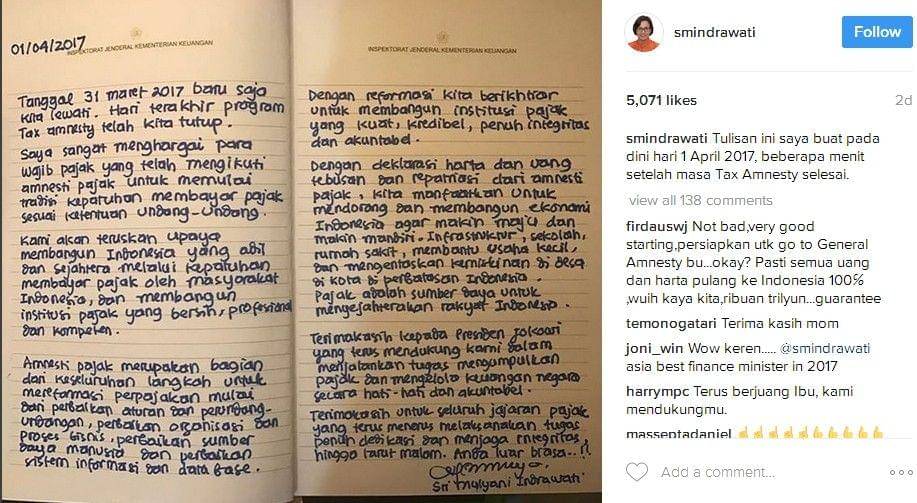 01/04/2017
INSPEKTORAT JENDERAL KEMENTERIAN KEUANGAN
Tanggal 31 maret 2017 baru saja
kita lewati. Hari terakhir program
Tax amnesty telah kita tutup.
Saya sangat menghargai para
wajib pajak yang telah mengikuti
amnesti pajak untuk memulai
tradisi kepatuhan membayar pajak
sesuai ketentuan undang-undang.
Kami akan teruskan upaya
membangun Indonesia yang adil
dan sejahtera melalui kepatuhan
membayar pajak oleh masyarakat
Indonesia, dan membangun
institusi pajak yang bersih, profesional
dan kompeten.
Amnesti pajak merupakan bagian
dari keseluruhan langkah untuk
mereformasi perpajakan mulai
dari perbaikan aturan dan perundang-
undangan, perbaikan organisasi dan
proses bisnis, perbaikan sumber
daya manusia dan perbaikan
sistem informasi dan data base.
INSPEKTORAT JENDERAL KEMENTERIAN KEUANGAN
Dengan reformasi kita berikhtiar
untuk membangun institusi pajak
yang kuat, kredibel, penuh integritas
dan akuntabel.
Dengan deklarasi harta dan uang
tebusan dan repatriasi dari amnesti
pajak, kita manfaatkan untuk
mendorong dan membangun ekonomi
Indonesia agar makin maju dan
makin mandiri. Infrastruktur, sekolah,
rumah sakit, membantu usaha kecil.
dan mengentaskan kemiskinan di desa
di kota di perbatasan Indonesia.
Pajak adalah sumber daya untuk
mensejahterakan rakyat Indonesia.
Terimakasih kepada Presiden Jokowi
yang terus mendukung kami dalam
menjalankan tugas mengumpulkan
pajak dan mengelola keuangan negara
secara hati-hati dan akuntabel.
Terimakasih untuk seluruh jajaran pajak
yang terus menerus melaksanakan tugas
penuh dedikasi dan menjaga integritas,
hingga larut malam. Anda luar biasa..!!
Sri Mulyani Indrawati
smindrawati
Follow
5,071 likes
2d
smindrawati Tulisan ini saya buat pada
dini hari 1 April 2017, beberapa menit
setelah masa Tax Amnesty selesai.
view all 138 comments
firdauswj Not bad,very good
starting,persiapkan utk go to General
Amnesty bu...okay? Pasti semua uang
dan harta pulang ke Indonesia 100%
,wuih kaya kita,ribuan trilyun...guarantee
temonogatari Terima kasih mom
joni_win Wow keren..... @smindrawati
asia best finance minister in 2017
harrympc Terus berjuang Ibu, kami
mendukungmu.
masseptadaniel 👍👍👍👍👍👍👍👍👍👍👍
Add a comment...